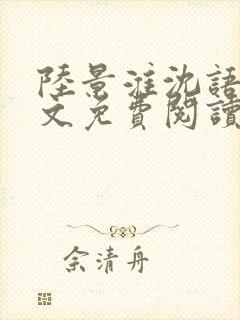 陸景淮沈語
文免費閱讀
余清舟